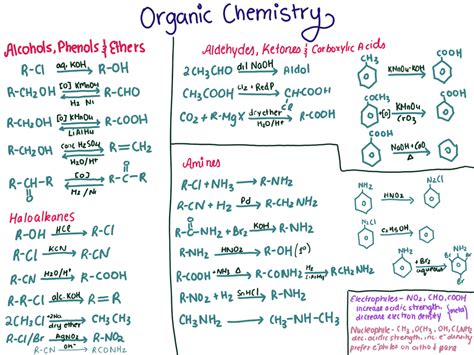 Organic Chemistry
Alcohols, Phenols & Ethers
R-Cl aq. KOH R-OH
R-CH2OH [O] KMnO4 R-CHO
H2 Ni
R-CH2OH [O] KMnO4 R-COOH
LiAlH4
R-CH2OH conc H2SO4 R=CH2
H2O/H+
R-CH-R [O] R-C-R
OH H2/Ni O
Haloalkanes
R-OH HCl R-Cl
R-Cl KCN R-CN
R-CN H2O/H+ R-COOH
R-R-Cl alc. KOH R=
2CH3Cl 2Na
dry ether
R-Cl/Br AgNO2 R-NO2
R-CN OH- RCONH2
Aldehydes, Ketones & Carboxylic Acids
2CH3CHO dil NaOH Aldol
CH3COOH Cl2 + RedP CH2COOH
Cl
CO2 + R-MgX dry ether R-COOH
H2O/H+
CH3 KMnO4-KOH COOH
COCH3 [O] KMnO4 COOH
CrO3
COOH
NaOH + CaO
Δ
Amines
R-Cl + NH3 R-NH2
R-CN + H2 Pd R-CH2NH2
R-C-NH2 + Br2 KOH R-NH2
O
R-NH2 HNO2 R-OH (1°)
R-COOH +NH3 Δ R-CONH2 RCH2NH2
R-NO2 + H2 Sn HCl R-NH2
CH3-NH2 CH3-NH-CH3
NH2 HNO2 N2Cl
N2Cl C2H5OH
NH2 + Br2 NH2
aqueous Br Br
Br
Electrophiles - NO2, CHO, COOH
increase acidic strength, (meta)
decrease electron density
Nucleophile - CH3, OCH3, OH, Cl, NH2
dec. acidic strength, inc. e- density
prefer e- philes on ortho & para